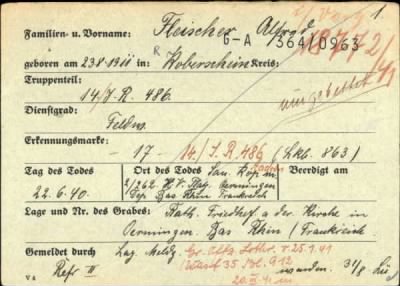 1.
Familien- u. Vorname: Fleischer Alfred
G-A 364/0963
1877/2/41
geboren am 23.8.1911 in: Koberschein Kreis:
Truppenteil:
14./J.R. 486. umgebettet
Dienstgrad:
Feldw.
Erkennungsmarke:
-17- 14./J.R.486 (Lkb. 863)
Tag des Todes Ort des Todes San. Komp. Beerdigt am
22.6.40. 2/262. H.V.Pl. Oermingen
Dep. Bas Rhin Frankreich
Lage und Nr. des Grabes: Kath. Friedhof a. der Kirche in
Oermingen. Bas Rhin / Frankreich
Gemeldet durch Lag. Meldg. Gr. Offz. Lothr. v. 25.1.41
Refr III 35 Bl. 912
V 4 31/8